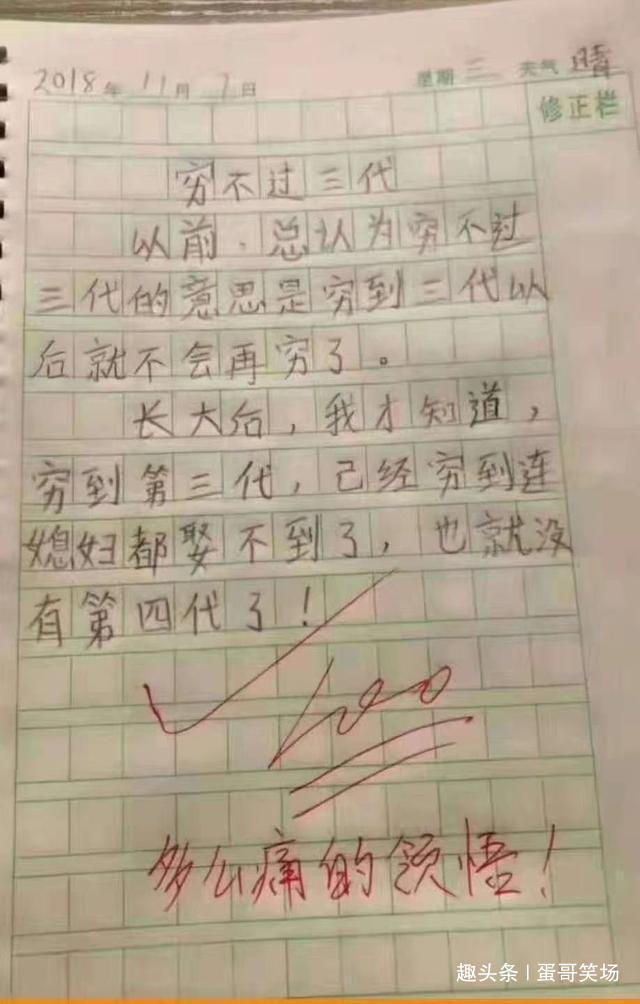 2018年11月7日 星期三 天气 晴
修正栏
穷不过三代
以前,总认为穷不过
三代的意思是穷到三代以
后就不会再穷了。
长大后,我才知道,
穷到第三代,己经穷到连
媳妇都娶不到了,也就没
有第四代了!
100
多么痛的领悟!
趣头条 | 蛋哥笑场